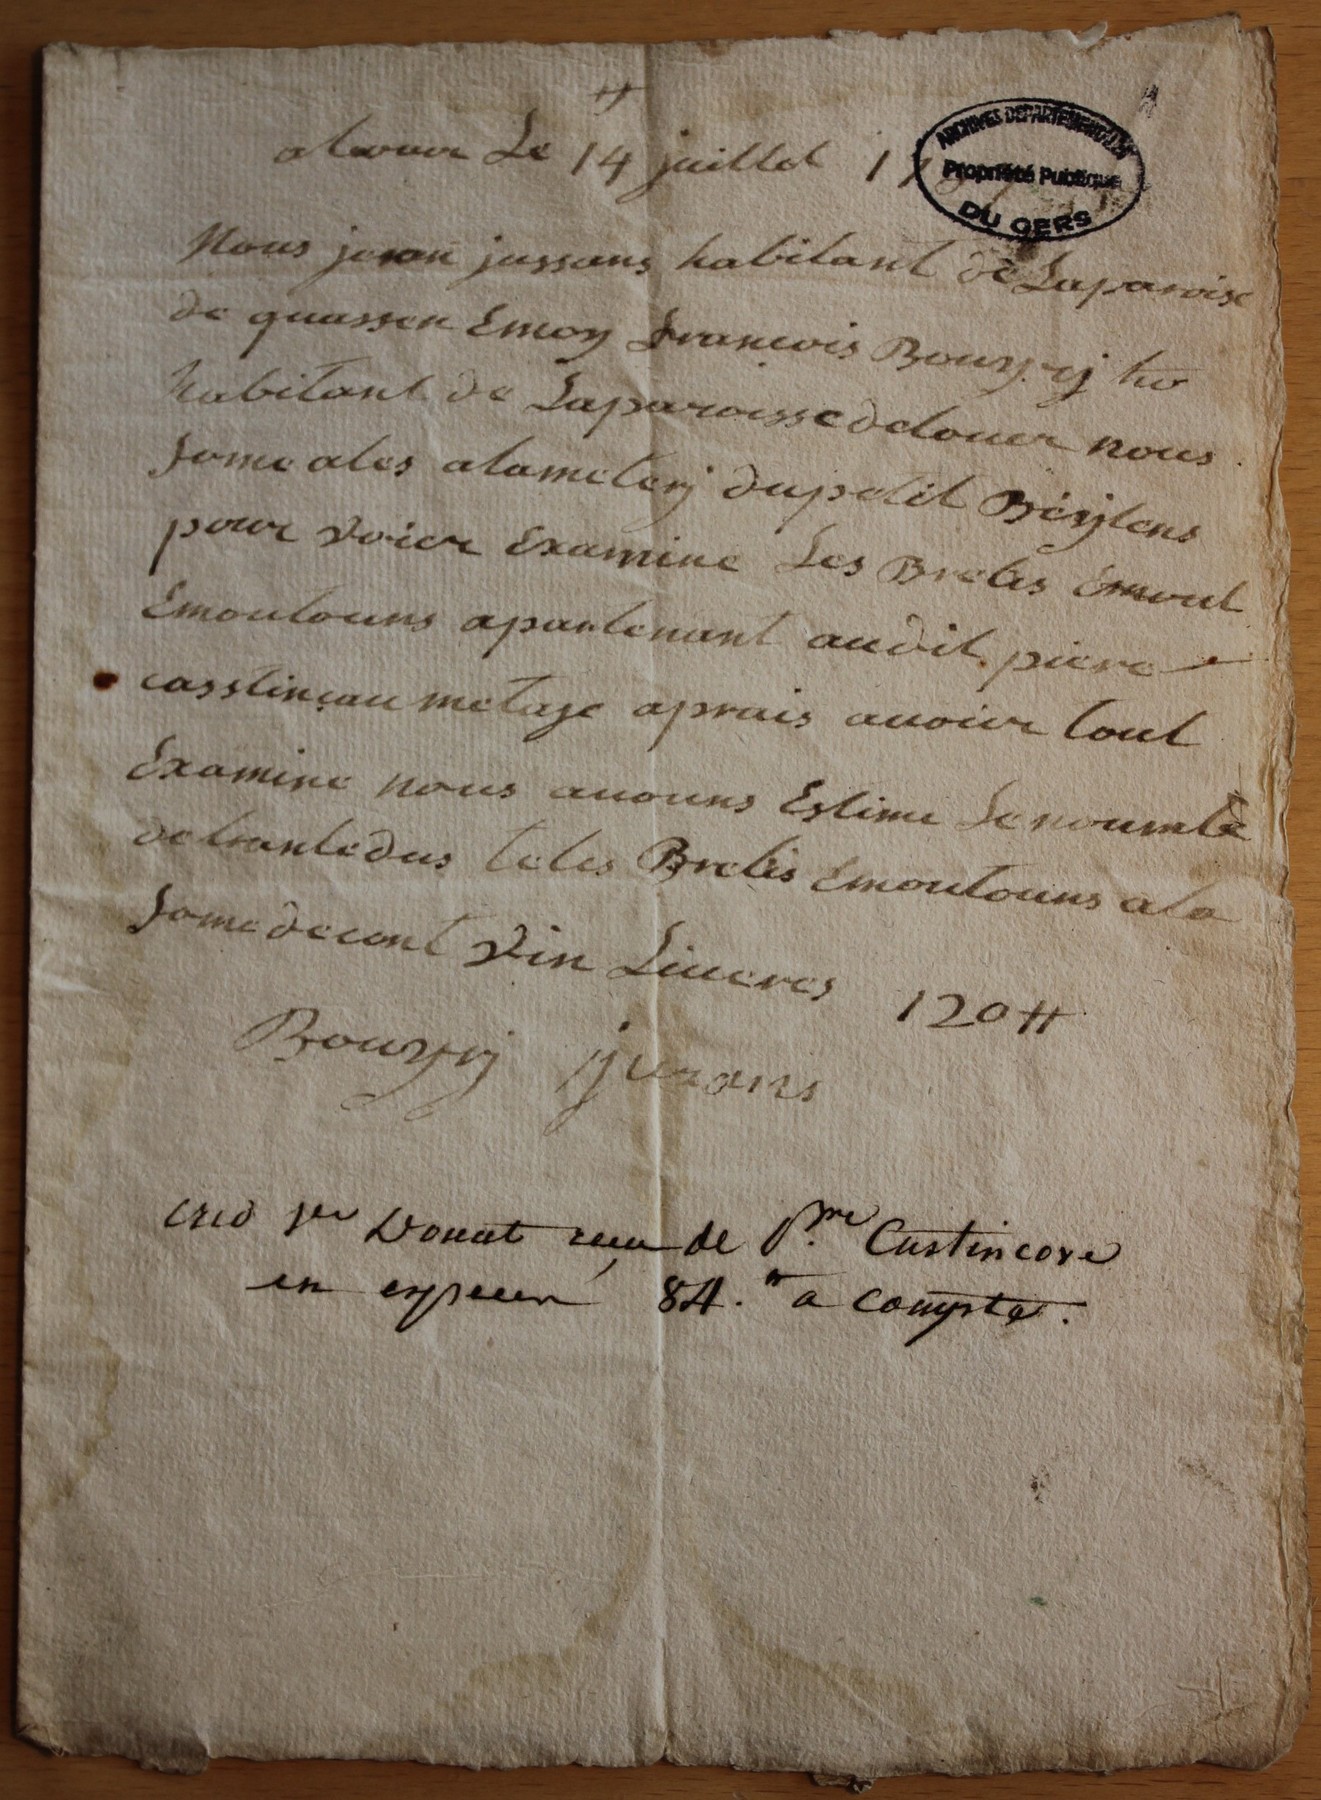 alouer Le 14 juillet 17
ARCHIVES DEPARTEMENTALES
Propriété Publique
DU GERS
Nous jean jussans habitant de Laparoise
de quassen Emoy francois Bouyrj ha
habitant de Laparoisse delouer nous
some ales alameterj dupetit Béqtens
pour voier Examine Les Brebis Emout
Emoutouns apartenant audit piere
casstinçau metaje aprais auoier tout
Examine nous auouns Estime Lenoumbe
detrantedus tetes Brebis Emoutouns ala
some decent vin Liueres 120 ⁜
Bouyrj jjusans
Douat reçu de P.re Castincove
en 84.tt a compte.